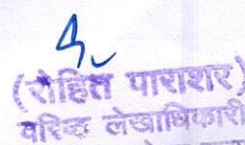 (रोहित पाराशर)
वरिष्ठ लेखाधिकारी